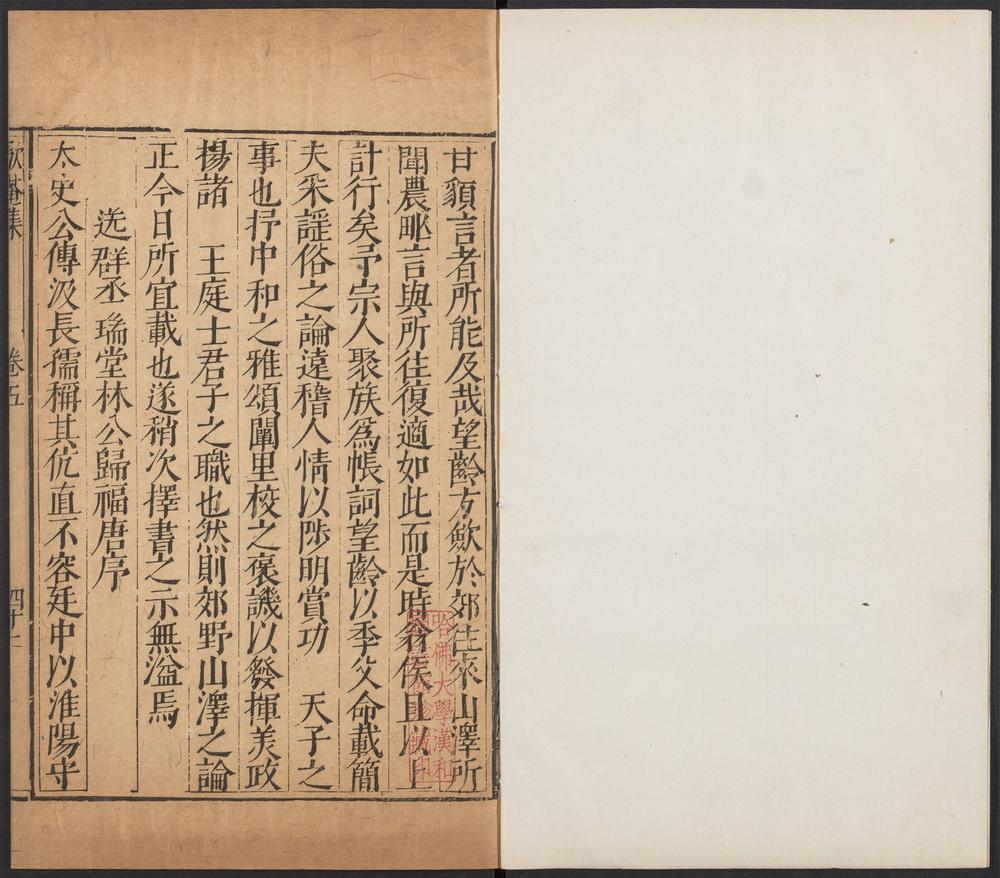 甘顙言者所能及哉望齡方歛於郊往來山澤所
聞農畝言與所往復適如此而是時翁侯且以上
計行矣予宗人聚族爲帳詞望齡以季父命載簡
夫采謡俗之論遠稽人情以陟明賞功　天子之
事也抒中和之雅頌闡里校之褒譏以發揮美政
揚諸　王庭士君子之職也然則郊野山澤之論
正今日所宜載也遂稍次擇書之示無溢焉
送群丞瑞堂林公歸福唐序
太史公傳汲長孺稱其伉直不容廷中以淮陽守
歇菴集　卷五　四十二
哈佛大學漢和
圖書館珍藏印